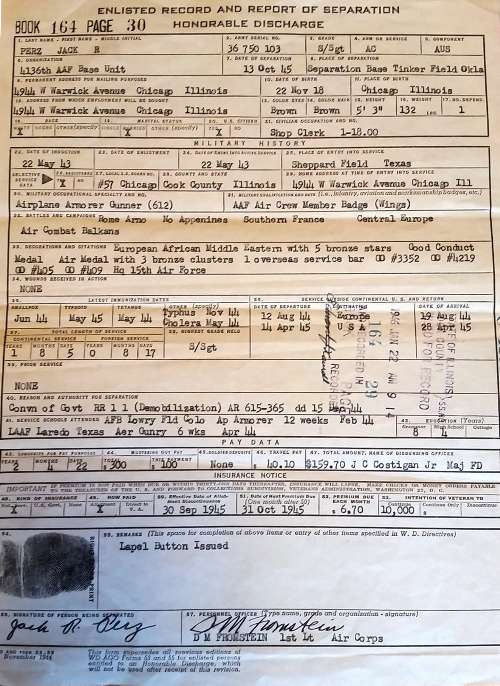 ENLISTED RECORD AND REPORT OF SEPARATION
HONORABLE DISCHARGE
BOOK 164 PAGE 30
1. LAST NAME - FIRST NAME - MIDDLE INITIAL
PERZ JACK R
2. ARMY SERIAL NO.
36 750 103
3. GRADE
S/Sgt
4. ARM OR SERVICE
AC
5. COMPONENT
AUS
6. ORGANIZATION
4136th AAF Base Unit
7. DATE OF SEPARATION
13 Oct 45
8. PLACE OF SEPARATION
Separation Base Tinker Field Okla
9. PERMANENT ADDRESS FOR MAILING PURPOSES
4944 W Warwick Avenue Chicago Illinois
10. DATE OF BIRTH
22 Nov 18
11. PLACE OF BIRTH
Chicago Illinois
12. ADDRESS FROM WHICH EMPLOYMENT WILL BE SOUGHT
4944 W Warwick Avenue Chicago Illinois
13. COLOR EYES
Brown
14. COLOR HAIR
Brown
15. HEIGHT
5' 3"
16. WEIGHT
132 LBS.
17. NO. DEPEND.
1
18. RACE
19. MARITAL STATUS
20. U.S. CITIZEN
21. CIVILIAN OCCUPATION AND NO.
Shop Clerk 1-18.00
MILITARY HISTORY
22. DATE OF INDUCTION
22 May 43
23. DATE OF ENLISTMENT
24. DATE OF ENTRY INTO ACTIVE SERVICE
22 May 43
25. PLACE OF ENTRY INTO SERVICE
Sheppard Field Texas
SELECTIVE SERVICE DATA
27. LOCAL S.S. BOARD NO.
#57 Chicago
28. COUNTY AND STATE
Cook County Illinois
29. HOME ADDRESS AT TIME OF ENTRY INTO SERVICE
4944 W Warwick Avenue Chicago Ill
30. MILITARY OCCUPATIONAL SPECIALTY AND NO.
Airplane Armorer Gunner (612)
AAF Air Crew Member Badge (Wings)
32. BATTLES AND CAMPAIGNS
Rome Arno No Appenines Southern France Central Europe
Air Combat Balkans
33. DECORATIONS AND CITATIONS
European African Middle Eastern with 5 bronze stars Good Conduct
Medal Air Medal with 3 bronze clusters 1 overseas service bar GO #3352 GO #4219
GO #405 GO #409 Hq 15th Air Force
34. WOUNDS RECEIVED IN ACTION
NONE
35. LATEST IMMUNIZATION DATES
SMALLPOX
Jun 44
TYPHOID
May 45
TETANUS
May 44
OTHER (specify)
Typhus Nov 44
Cholera May 44
36. SERVICE OUTSIDE CONTINENTAL U.S. AND RETURN
DATE OF DEPARTURE
DESTINATION
DATE OF ARRIVAL
12 Aug 44 Europe 19 Aug 44
14 Apr 45 U S A 28 Apr 45
37. TOTAL LENGTH OF SERVICE
CONTINENTAL SERVICE
FOREIGN SERVICE
YEARS MONTHS DAYS YEARS MONTHS DAYS
1 8 5 0 8 17
38. HIGHEST GRADE HELD
S/Sgt
39. PRIOR SERVICE
NONE
40. REASON AND AUTHORITY FOR SEPARATION
Convn of Govt RR 1 1 (Demobilization) AR 615-365 dd 15 Dec 44
41. SERVICE SCHOOLS ATTENDED
AFB Lowry Fld Colo Ap Armorer 12 weeks Feb 44
LAAF Laredo Texas Aer Gunry 6 wks Apr 44
EDUCATION (Years)
Grammar High School College
8 4
PAY DATA
YEARS MONTHS DAYS
2 4 22
44. MUSTERING OUT PAY
TOTAL THIS PAYMENT
$300 $100
45. SOLDIER DEPOSITS
None
46. TRAVEL PAY
$40.10
47. TOTAL AMOUNT, NAME OF DISBURSING OFFICER
$159.70 J C Costigan Jr Maj FD
INSURANCE NOTICE
48. KIND OF INSURANCE
49. HOW PAID
30 Sep 1945
31 Oct 1945
PREMIUM DUE EACH MONTH
$ 6.70
INTENTION OF VETERAN TO
10,000
55. REMARKS (This space for completion of above items or entry of other items specified in W. D. Directives)
Lapel Button Issued
56. SIGNATURE OF PERSON BEING SEPARATED
Jack R. Perz
57. PERSONNEL OFFICER (Type name, grade and organization - signature)
D M Fromstein
D M FROMSTEIN 1st Lt Air Corps
November 1944
This form supersedes all previous editions of
WD AGO Forms 53 and 55 for enlisted persons
entitled to an Honorable Discharge, which
will not be used after receipt of this revision.